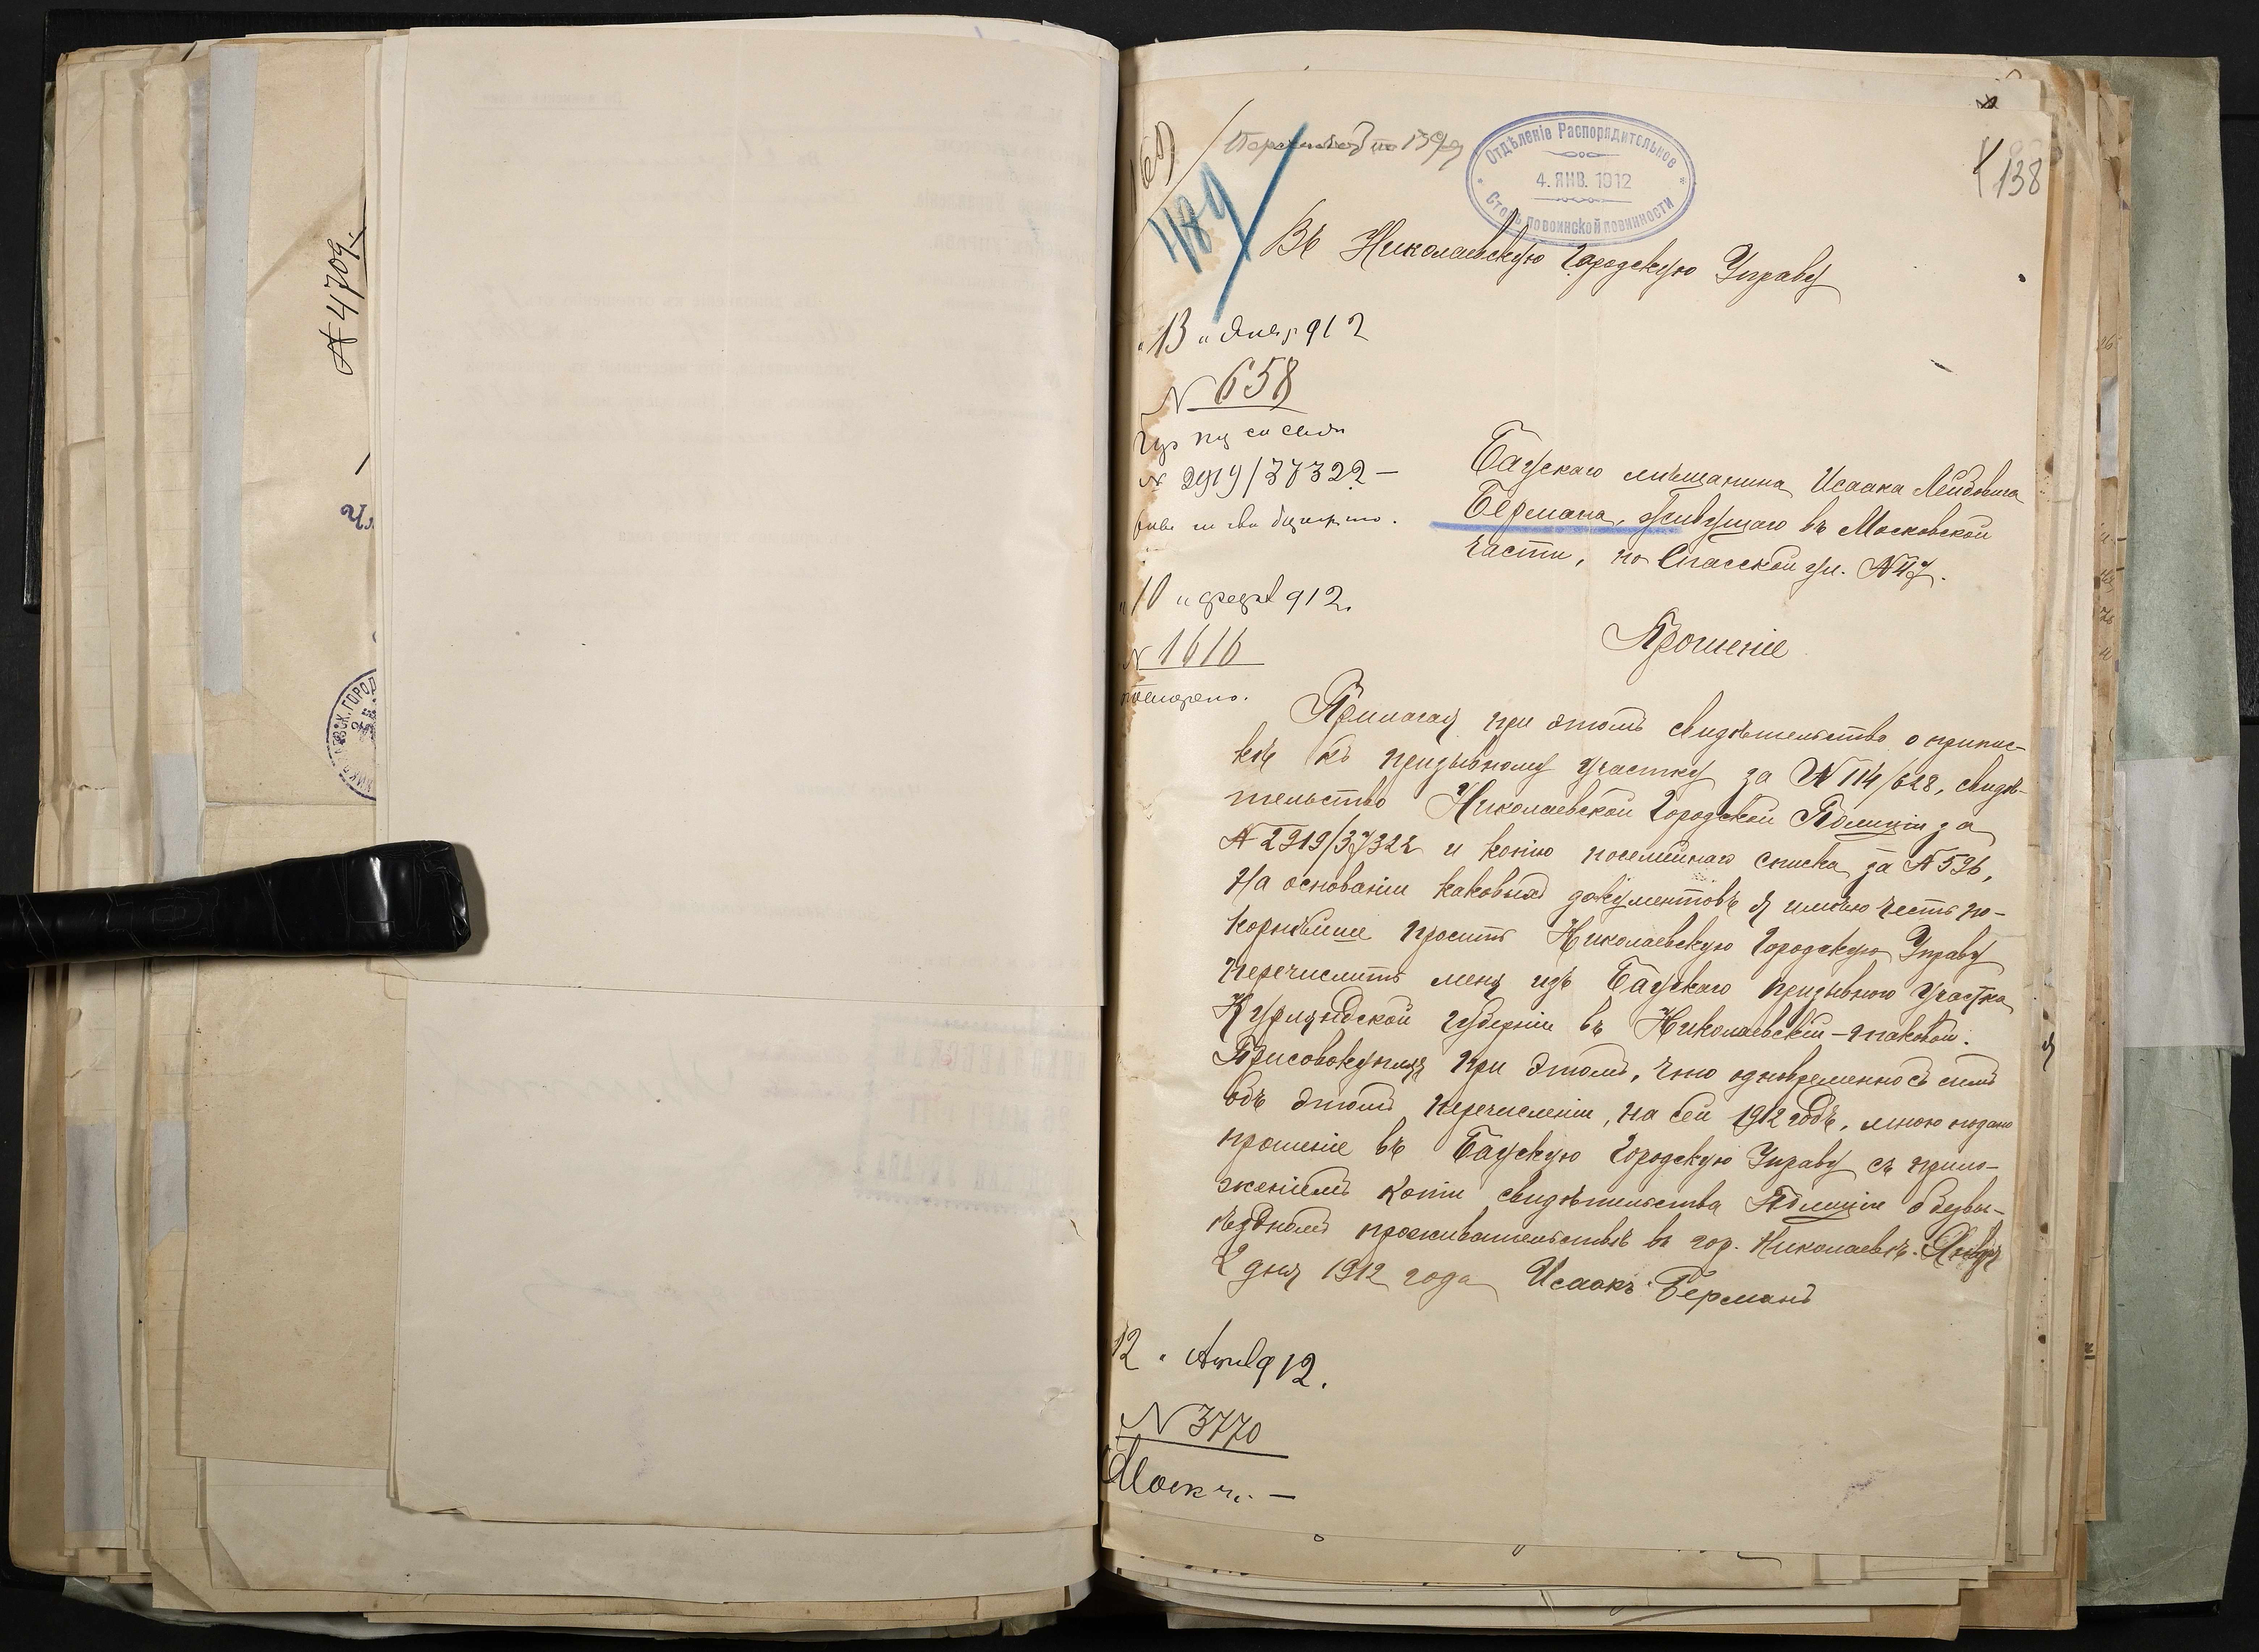 А 4709.
138
Отдѣленіе Распорядительное
4. ЯНВ. 1912
Столъ по воинской повинности
489
Въ Николаевскую Городскую Управу
"13" Янв. 912
N 658
№ 2919/37322 —
"10" февр 912.
N 1616
Баускаго мѣщанина Исаака Лейбовича
Бермана, живущаго въ Московской
части, по Спасской ул.
Прошеніе
Прилагая при этомъ свидѣтельство о припис-
кѣ къ призывному участку за № 114/628, свидѣ-
тельство Николаевской Городской Полиціи за
№ 2919/37322 и копію посемейнаго списка за № 596,
на основаніи каковыхъ документовъ я имѣю честь по-
корнѣйше просить Николаевскую Городскую Управу
перечислить меня изъ Баускаго призывного участка
Курляндской губерніи въ Николаевскій - таковой.
Присовокупляя при этомъ, что одновременно съ симъ
объ этомъ перечисленіи, на сей 1912 годъ, мною подано
прошеніе въ Баускую Городскую Управу съ прило-
женіемъ копіи свидѣтельства Полиціи о безвы-
ѣздномъ проживательствѣ въ гор. Николаевѣ. Января
2 дня 1912 года Исаакъ Берманъ
12 " Апр 912.
N 3770
Моск ч. —